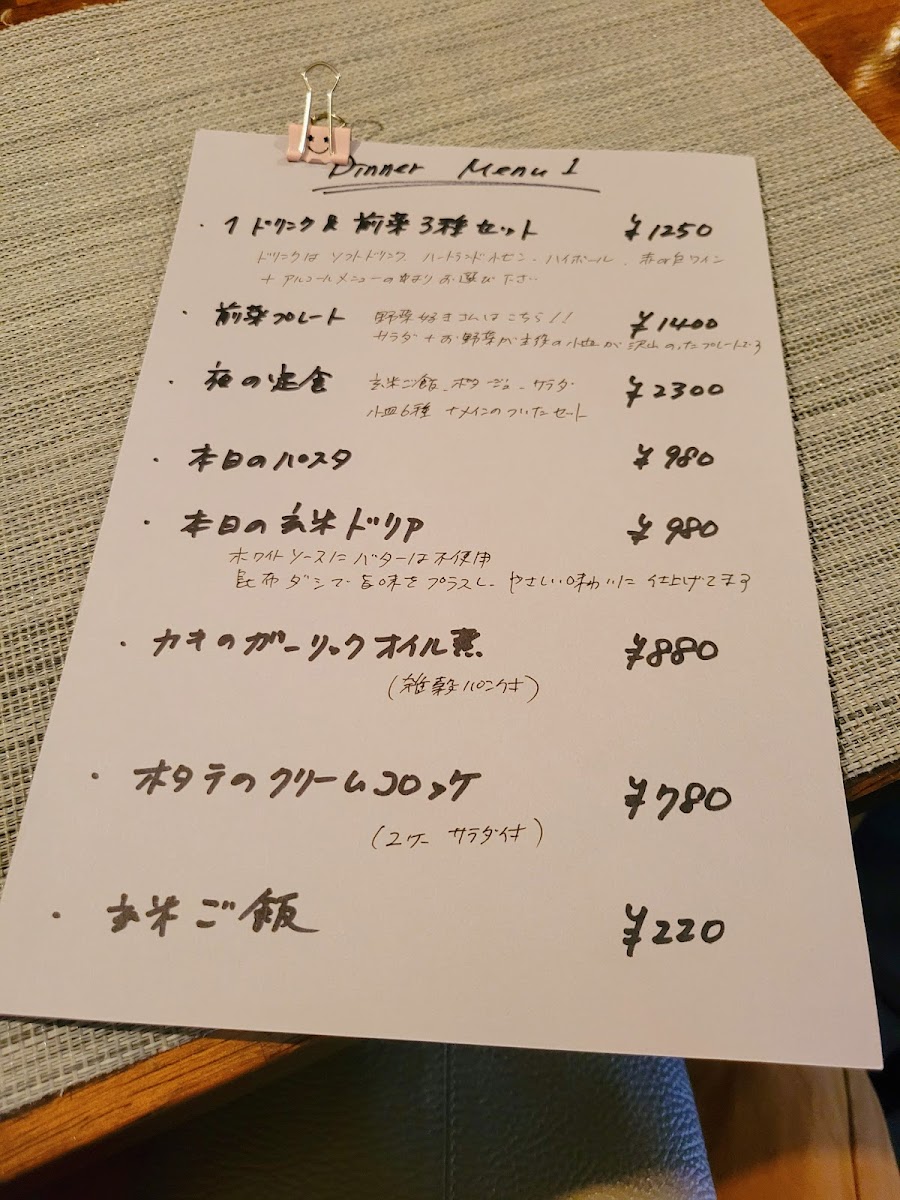 Dinner Menu 1
・1ドリンク & 前菜3種セット ¥1250
ドリンクは ソフトドリンク ハートランド小ビン、ハイボール、赤or白ワイン
+ アルコールメニューの中より お選び下さい
・前菜プレート 野菜好きさんはこちら!! ¥1400
サラダ+お野菜が主役の小皿が沢山のったプレートです
・夜の定食 玄米ご飯、ポタージュ、サラダ ¥2300
小皿6種 +メインのついたセット
・本日のパスタ ¥980
・本日の玄米ドリア ¥980
ホワイトソースにバターは不使用
昆布ダシで旨味をプラスし、やさしい味わいに仕上げてます
・カキのガーリックオイル煮 ¥880
(雑穀パン付き)
・ホタテのクリームコロッケ ¥780
(2ケ サラダ付き)
・玄米ご飯 ¥220